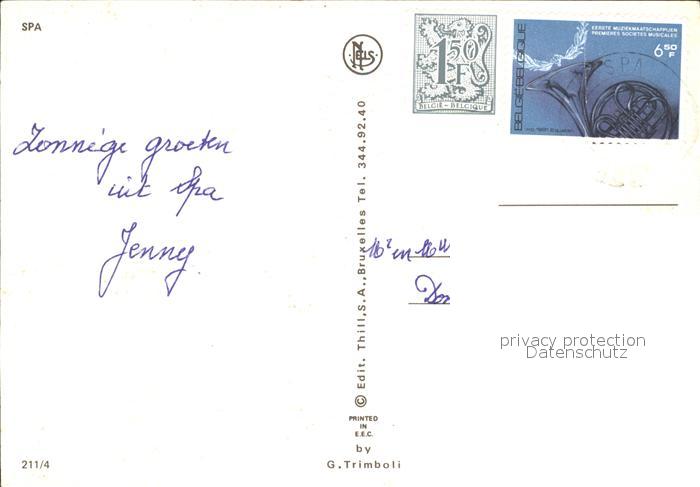 SPA
NELS
1,50 F
BELGIË - BELGIQUE
BELGIË BELGIQUE
EERSTE MUZIEKMAATSCHAPPIJEN
PREMIERES SOCIETES MUSICALES
6 50 F
SPA
Zonnige groeten
uit Spa
Jenny
Mr en Mw
Dos
privacy protection
Datenschutz
© Edit. Thill,S.A.,Bruxelles Tel. 344.92.40
PRINTED
IN
E.E.C.
by
G.Trimboli
211/4